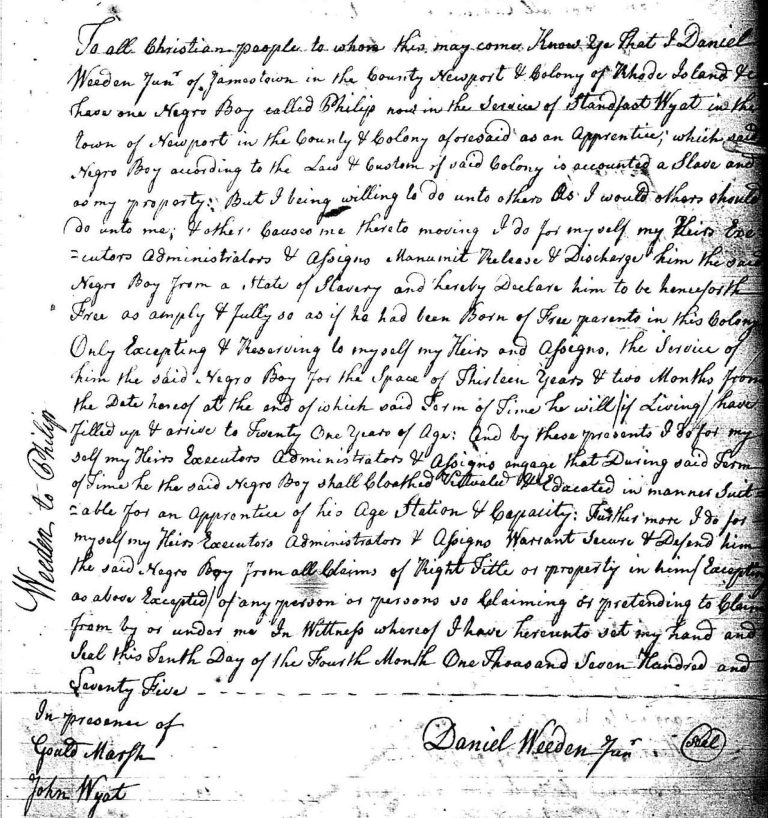 To all Christian people to whom this may come Know Ye That I Daniel
Weeden Junr of Jamestown in the County Newport & Colony of Rhode Island &c
have one Negro Boy called Philip now in the Service of Standfast Wyat in the
town of Newport in the County & Colony aforesaid as an Apprentice; which said
Negro Boy according to the Law & Custom of said Colony is accounted a Slave and
as my property: But I being willing to do unto others As I would others should
do unto me; & other Causes me thereto moving I do for my self my Heirs Exe
=cutors Administrators & Assigns Manumit Release & Discharge him the said
Negro Boy from a State of Slavery and hereby Declare him to be henceforth
Free as amply & fully so as if he had been Born of Free parents in this Colony
Only Excepting & Reserving to myself my Heirs and Assigns, the Service of
him the said Negro Boy for the Space of Thirteen Years & two Months from
the Date hereof at the end of which said Term of Time he will (if Living) have
filled up & arrive to Twenty One Years of Age: And by these presents I do for my
self my Heirs Executors Administrators & Assigns engage that During said Term
of Time he the said Negro Boy shall Cloathed Victualed & Educated in manner Suit=
=able for an Apprentice of his Age Station & Capacity: Further more I do for
myself my Heirs Executors Administrators & Assigns Warrant Secure & Defend him
the said Negro Boy from all Claims of Right Title or property in him (Excepting
as above Excepted) of any person or persons so Claiming or pretending to Claim
from by or under me In Wittness whereof I have hereunto set my hand and
Seal this Tenth Day of the Fourth Month One Thousand Seven Hundred and
Seventy Five
In presence of
Gould Marsh
John Wyat
Daniel Weeden Junr Seal
Weeden to Philip